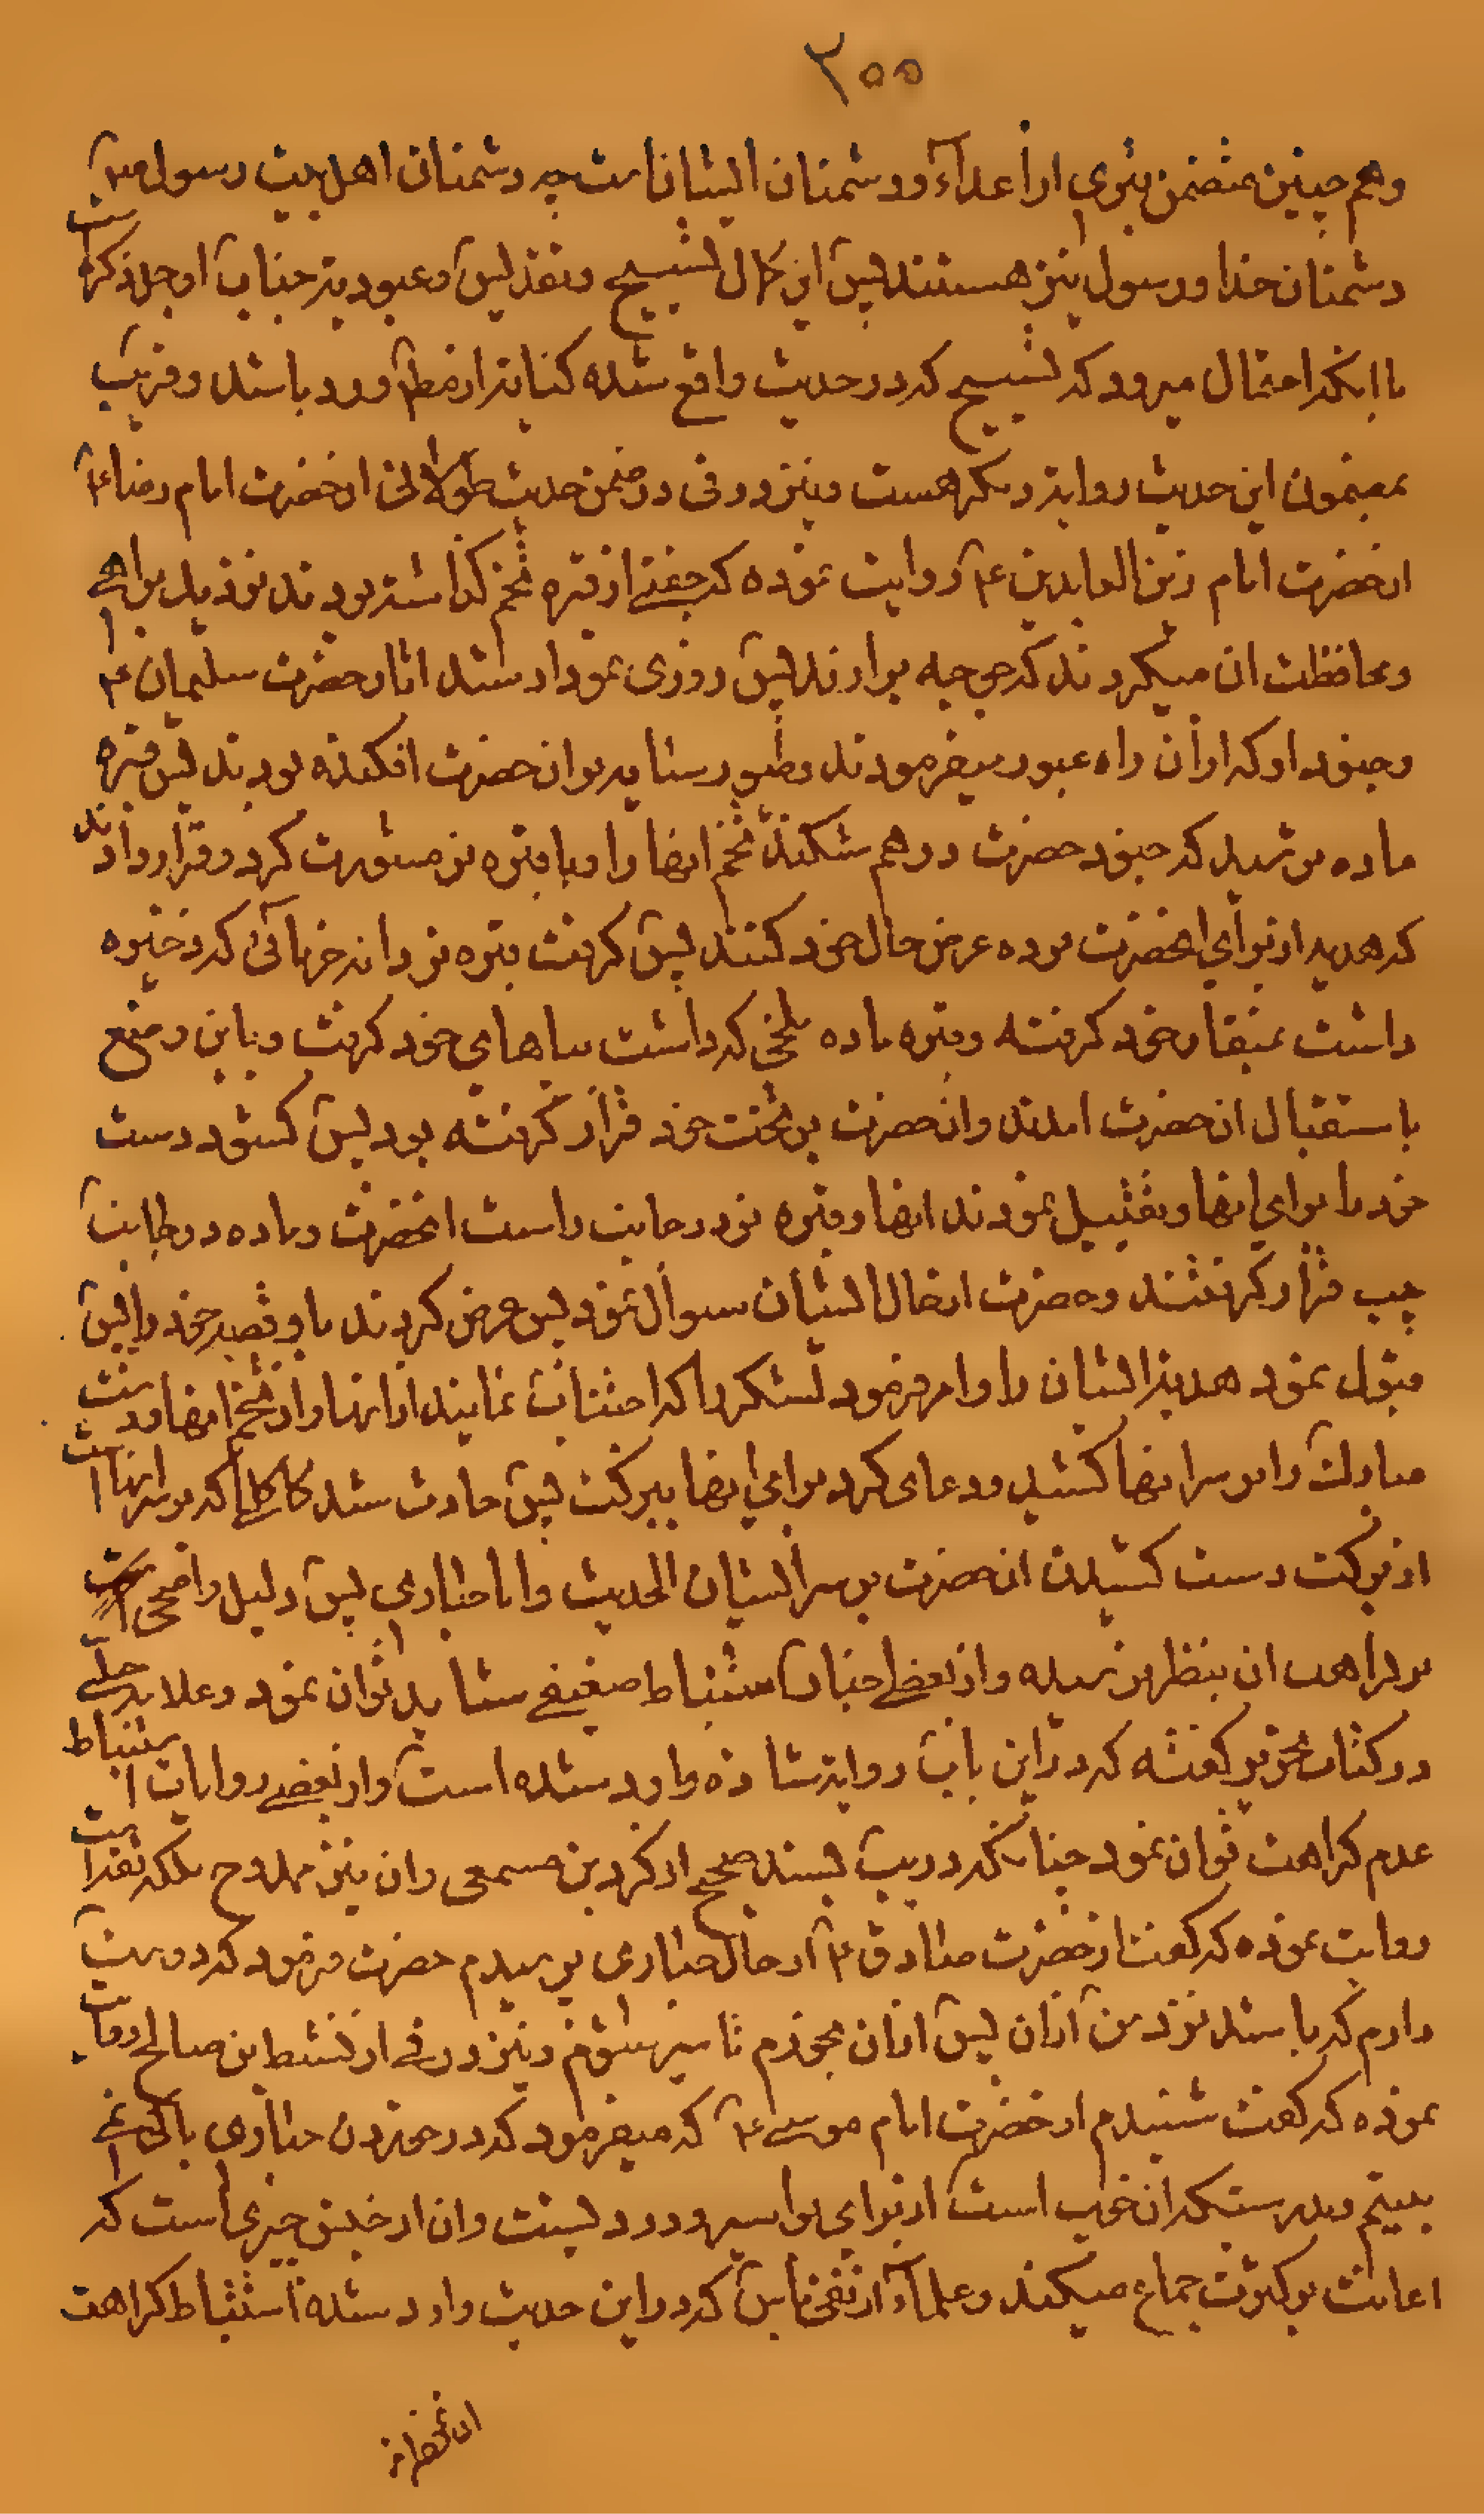 ۲۰۰
و هم چنین متضمن تبری از أعدآء و دشمنان ایشان است چه دشمنان اهل بیت رسول ص
دشمنان خدا و رسول نیز هستند پس این کمال تسبیح و تقدیس و عبودیة جناب او جل ذکره است
با اینکه احتمال میرود که تسبیح که در حدیث واقع شده کنایة از مطلق ورد باشد و قریب
بمضمون این حدیث روایة دیکر هست و نیز در فی در ضمن حدیث طولانی از حضرت امام رضا ع
از حضرت امام زین العابدین ع روایت نموده که جفتی از قبره تخم کذاشته بودند نزدیک براهی
و محافظت ان میکردند که جوجه برارند پس روزی نمودار شد اثار حضرت سلیمان ع
و جنود او که از ان راه عبور میفرمودند و طیور سایه بر ان حضرت افکنده بودند پس قبره
ماده ترسید که جنود حضرت درهم شکنند تخم انها را و با قبره نر مشورت کرد و قرار دادند
که هدیه از برای انحضرت برده عرض حال خود کنند پس کرفت قبره نر دانه خرمائی که ذخیره
داشت بمنقار خود کرفته و قبره ماده ملخی که داشت بپاهای خود کرفت و باین وضع
باستقبال ان حضرت امدند و انحضرت بر تخت خود قرار کرفته بود پس کشود دست
خود را برای انها و تقبیل نمودند انها و قبره نر در جانب راست انحضرت و ماده در جانب
چپ قرار کرفتند و حضرت از حال ایشان سوال نمود پس عرض کردند باو قصه خود را پس
قبول نمود هدیه ایشان را و امر فرمود لشکر را که اجتناب نمایند از انها و از تخم انها و دست
مبارک را بر سر انها کشید و دعای کرد برای انها ببرکت پس حادث شد کاکلی که بر سر انها است
از برکت دست کشیدن ان حضرت بر سر ایشان الحدیث و اما حباری پس دلیل واضحی
بر کراهت ان بنظر نرسیده و از بعضی اخبار استنباط ضعیفی شاید توان نمود و علامه حلی
در کتاب تحریر کفته که در این باب روایة شاذه وارد شده است و از بعضی روایات استنباط
عدم کراهت توان نمود چنانکه در یب بسند صحیح از کردین مسمعی و ان نیز ممدوح بلکه ثقه است
روایت نموده که کفت از حضرت صادق ع از حال حباری پرسیدم حضرت فرمود که دوست
دارم که باشد نزد من از ان پس از ان بخورم تا سیر شوم و نیز در فی از نشیط بن صالح روایت
نموده که کفت شنیدم از حضرت امام موسی ع که میفرمود که در خوردن حباری باکی نمی
بینم و بدرستیکه ان خوب است از برای بواسیر و درد پشت و ان از جنس چیزی است که
اعانت بر کثرت جماع میکند و علماء از نفی باس که در این حدیث وارد شده استنباط کراهت